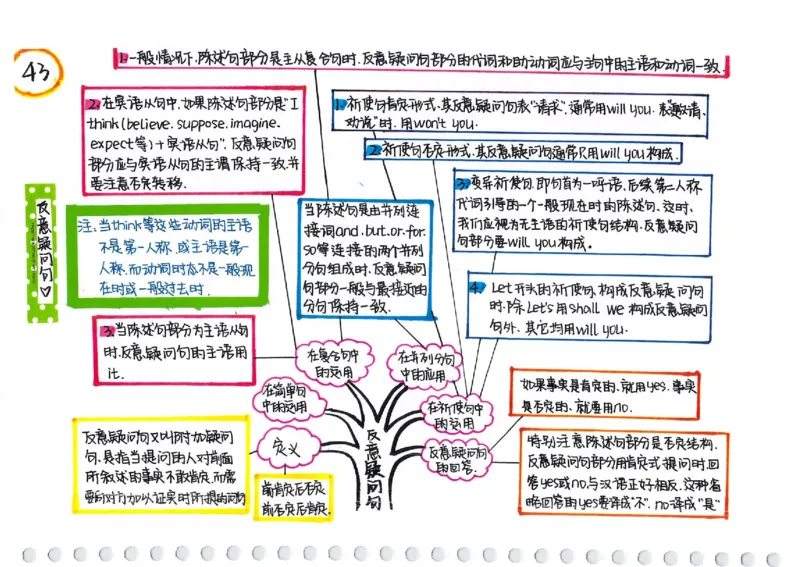 43
1.一般情况下,陈述句部分是主从复合句时,反意疑问句部分的代词和助动词应与主句中的主语和动词一致.
2.在宾语从句中,如果陈述句部分是"I
think(believe.suppose.imagine.
expect等)+宾语从句",反意疑问句
部分应与宾语从句的主谓保持一致,并
要注意否定转移.
1.祈使句肯定形式,其反意疑问句表"请求",通常用will you.表邀请、
劝说"时,用won't you.
2.祈使句否定形式,其反意疑问句通常只用will you构成.
3.变异祈使句,即句首为一呼语,后续第二人称
代词引导的一个一般现在时的陈述句.这时,
我们应视为无主语的祈使句结构,反意疑问
句部分要will you构成.
反意疑问句♡
注:当think等这些动词的主语
不是第一人称,或主语是第一
人称,而动词时态不是一般现
在时或一般过去时.
当陈述句是由并列连
接词and.but.or.for.
so等连接的两个并列
分句组成时,反意疑问
句部分一般与最接近的
分句保持一致.
4. Let开头的祈使句,构成反意疑问句
时,除Let's用shall we构成反意疑问
句外,其它均用will you.
3.当陈述句部分为主语从句
时,反意疑问句的主语用
it.
在复合句中
的应用
在并列分句
中的应用
在简单句
中的应用
在祈使句中
的应用
定义
反意疑问句
的回答.
反意疑问句
如果事实是肯定的,就用yes.事实
是否定的,就要用no.
反意疑问句又叫附加疑问
句,是指当提问的人对前面
所叙述的事实不敢肯定,而需
要向对方加以证实时所提的问句
前肯定后否定
前否定后肯定.
特别注意陈述句部分是否定结构,
反意疑问句部分用肯定式提问时,回
答yes或no与汉语正好相反.这种省
略回答的yes要译成"不".no译成"是"